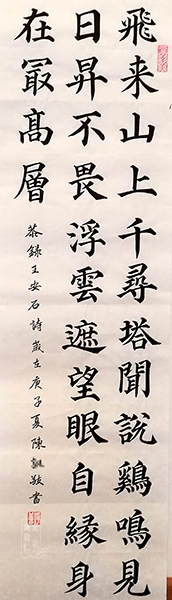 飛来山上千尋塔聞說鷄鳴見
日昇不畏浮雲遮望眼自緣身
在冣高層
恭錄王安石詩歲在庚子夏陳敬書